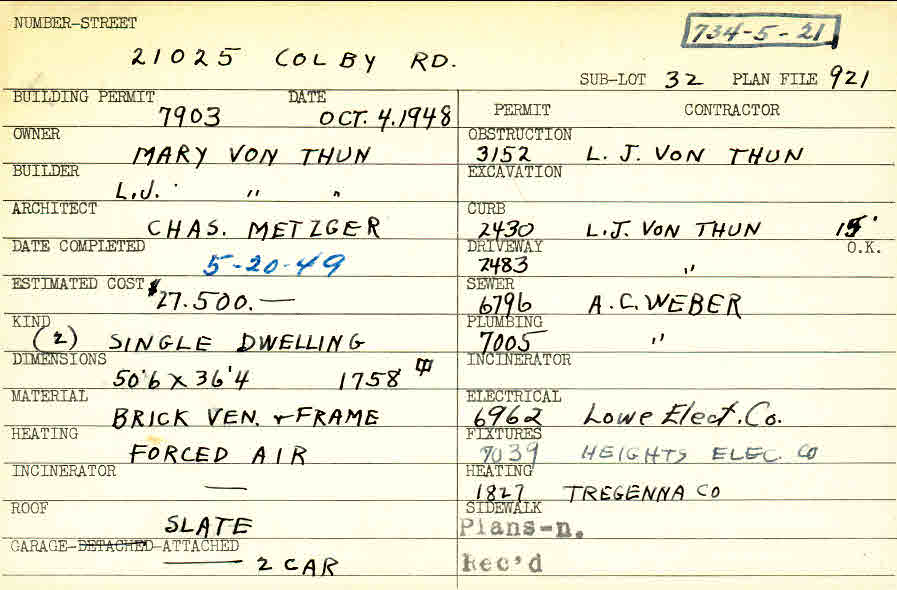 NUMBER-STREET
734-5-21
21025 COLBY RD.
SUB-LOT 32 PLAN FILE 921
BUILDING PERMIT DATE
7903 OCT. 4.1948
OWNER
MARY VON THUN
BUILDER
L.J. " "
ARCHITECT
CHAS. METZGER
DATE COMPLETED
5-20-49
ESTIMATED COST $27.500.—
KIND
(2) SINGLE DWELLING
DIMENSIONS
50'6 x 36'4 1758
MATERIAL
BRICK VEN. + FRAME
HEATING
FORCED AIR
INCINERATOR
—
ROOF
SLATE
GARAGE-DETACHED-ATTACHED
2 CAR
PERMIT CONTRACTOR
OBSTRUCTION
3152 L. J. VON THUN
EXCAVATION
CURB
2430 L.J. VON THUN 15'
DRIVEWAY O.K.
2483 "
SEWER
6796 A.C. WEBER
PLUMBING
7005 "
INCINERATOR
ELECTRICAL
6962 Lowe Elect. Co.
FIXTURES
7039 HEIGHTS ELEC. CO
HEATING
1827 TREGENNA CO
SIDEWALK
Plans-n.
Rec'd